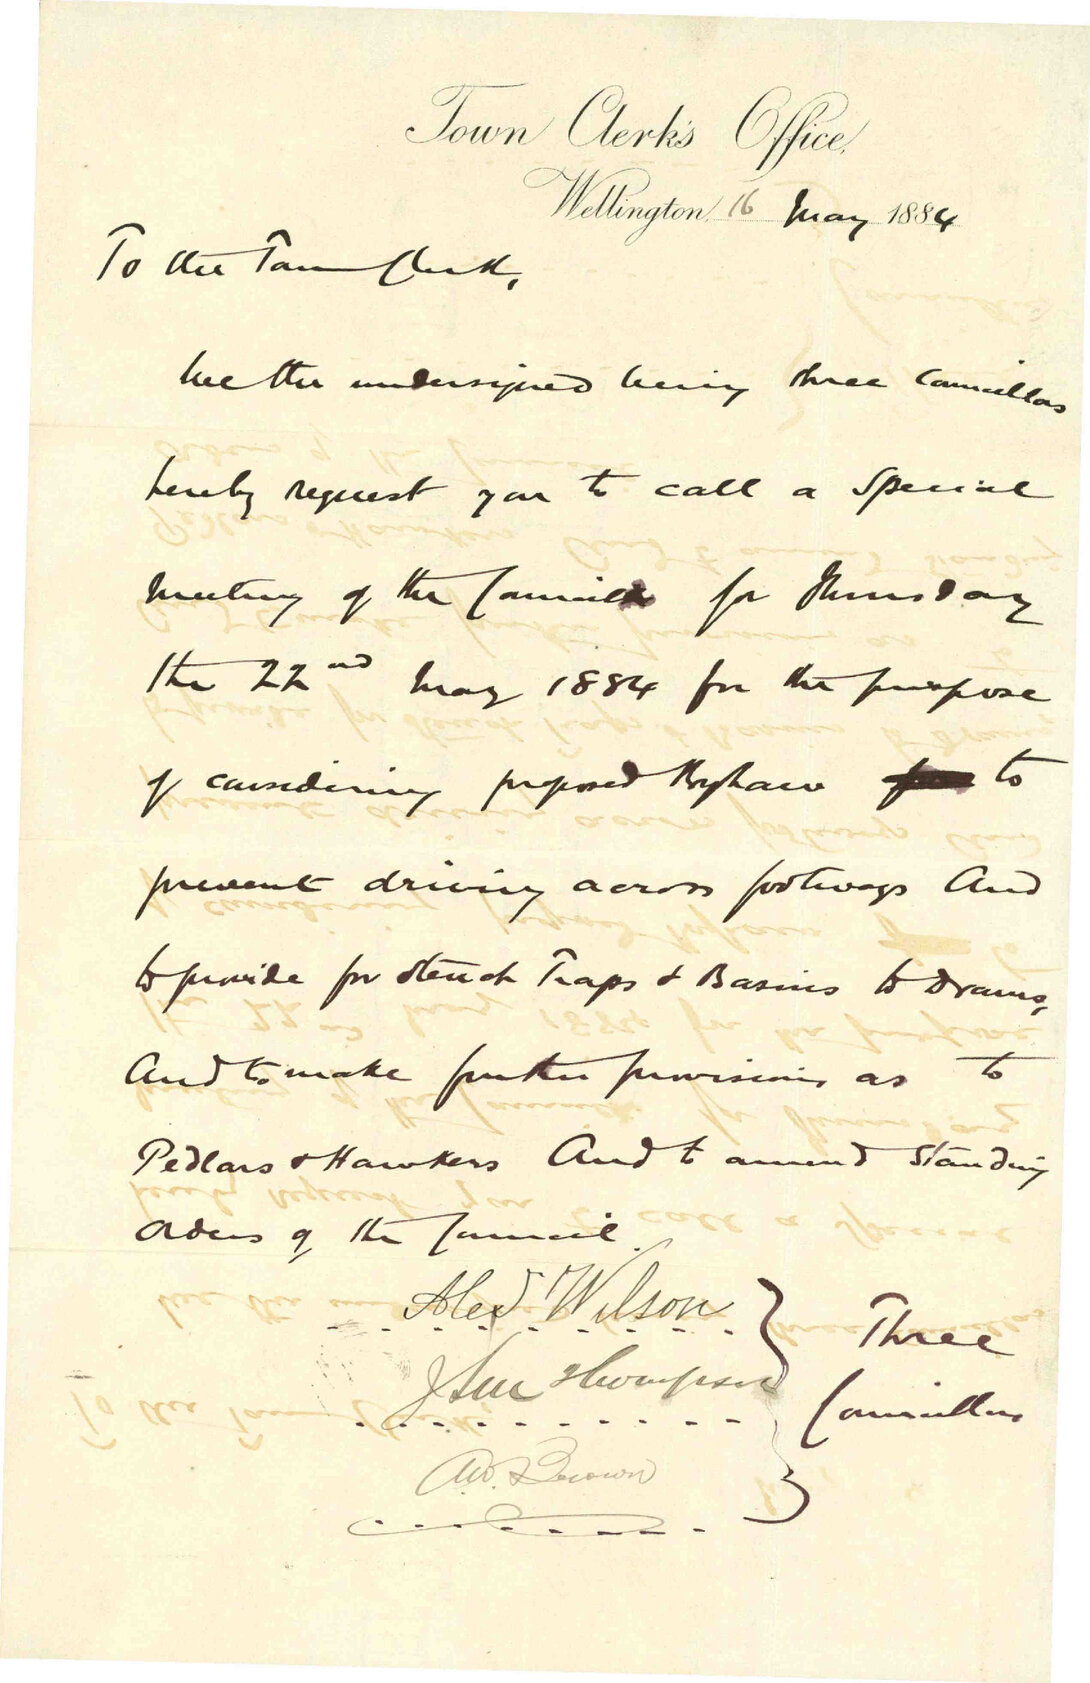 Town Clerk's Office,
Wellington 16 May 1884
To the Town Clerk,
We the undersigned being three Councillors
hereby request you to call a Special
Meeting of the Council for Thursday
the 22nd May 1884 for the purpose
of considering proposed Byelaw to
prevent driving across footways And
to provide for Stench Traps & Basins to Drains,
And to make further provisions as to
Pedlars & Hawkers And to amend Standing
Orders of the Council.
Alexd Wilson
Thompson
Brown
Three
Councillors